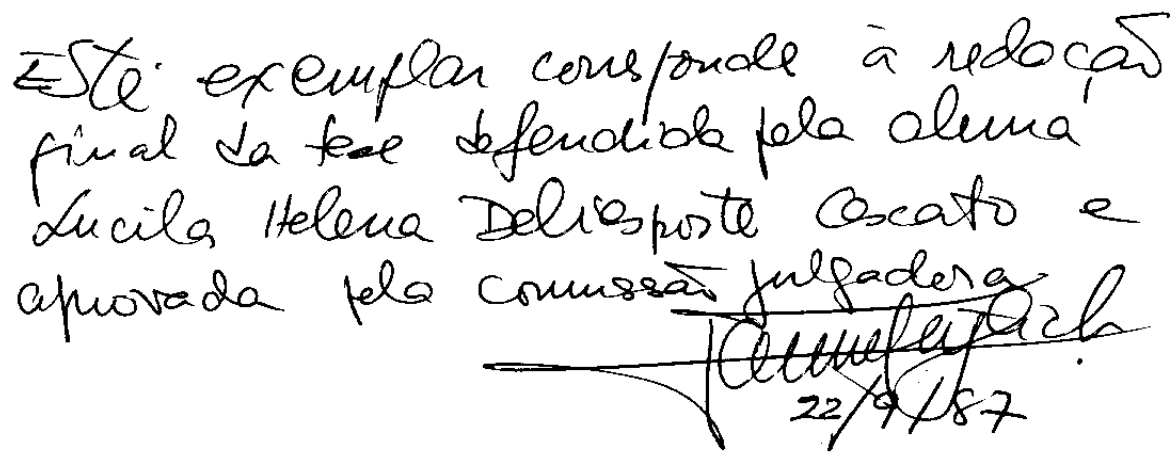 Este exemplar corresponde à redação
final da tese defendida pela aluna
Lucila Helena Deliesposte Cescato e
aprovada pela comissão julgadora
22/9/87